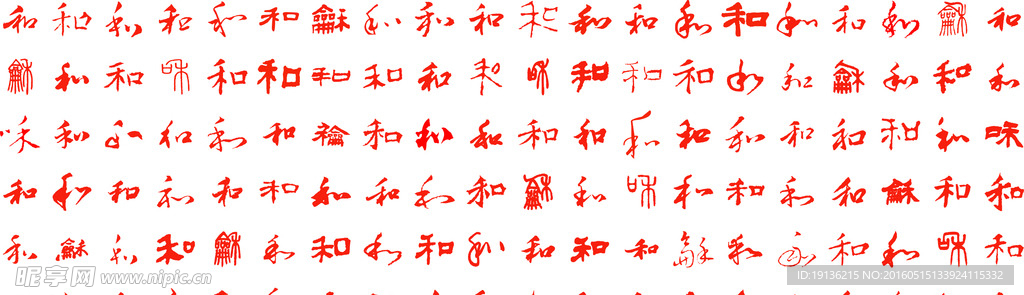 和和和和和和龢和和和和和和和和和和和龢和
龢和和咊和和和和和和咊和和和和和龢和和和
咊和和和和和龢和和和和和和和和和和和和咊
和和和和和和和和和和龢和咊和和和和龢和和
和龢和和龢和和和和和和和和龢和和和和咊和
昵享网 www.nipic.cn
ID:19136215 NO:20160515133924115332